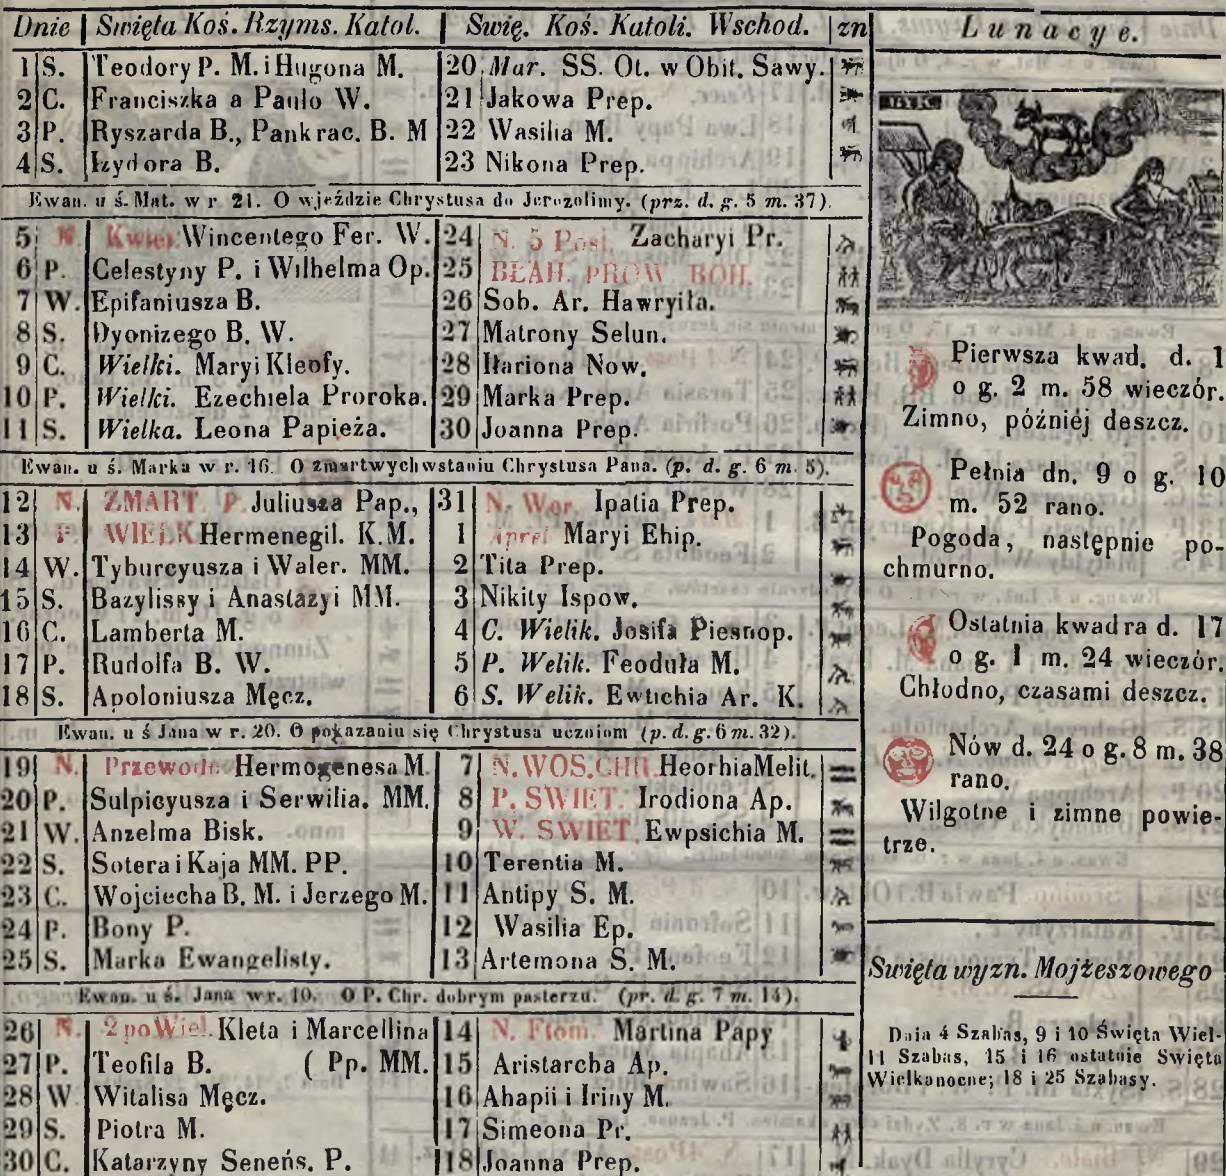 Dnie | Swięta Koś. Rzyms. Katol. | Swię. Koś. Katoli. Wschod. | zn
1 S. Teodory P. M. i Hugona M. 20 Mar. SS. Ot. w Obit. Sawy.
2 C. Franciszka a Paulo W. 21 Jakowa Prep.
3 P. Ryszarda B., Pankrac. B. M 22 Wasilia M.
4 S. Izydora B. 23 Nikona Prep.
Ewan. u ś. Mat. w r. 21. O wjeździe Chrystusa do Jerozolimy. (prz. d. g. 5 m. 37).
5 N. Kwiet. Wincentego Fer. W. 24 N. 5 Post. Zacharyi Pr.
6 P. Celestyny P. i Wilhelma Op. 25 BŁAH. PROW. BOH.
7 W. Epifaniusza B. 26 Sob. Ar. Hawryiła.
8 S. Dyonizego B. W. 27 Matrony Selun.
9 C. Wielki. Maryi Kleofy. 28 Ilariona Now.
10 P. Wielki. Ezechiela Proroka. 29 Marka Prep.
11 S. Wielka. Leona Papieża. 30 Joanna Prep.
Ewan. u ś. Marka w r. 16. O zmartwychwstaniu Chrystusa Pana. (p. d. g. 6 m. 5).
12 N. ZMART. P. Juliusza Pap., 31 N. Wor. Ipatia Prep.
13 P. WIELK. Hermenegil. K.M. 1 Aprel Maryi Ehip.
14 W. Tyburcyusza i Waler. MM. 2 Tita Prep.
15 S. Bazylissy i Anastazyi MM. 3 Nikity Ispow.
16 C. Lamberta M. 4 C. Wielik. Josifa Piesnop.
17 P. Rudolfa B. W. 5 P. Welik. Feoduła M.
18 S. Apoloniusza Męcz. 6 S. Welik. Ewtichia Ar. K.
Ewan. u ś Jana w r. 20. O pokazaniu się Chrystusa uczniom (p. d. g. 6 m. 32).
19 N. Przewodn. Hermogenesa M. 7 N. WOS. CHR. Heorhia Melit.
20 P. Sulpicyusza i Serwilia. MM. 8 P. SWIET. Irodiona Ap.
21 W. Anzelma Bisk. 9 W. SWIET. Ewpsichia M.
22 S. Sotera i Kaja MM. PP. 10 Terentia M.
23 C. Wojciecha B. M. i Jerzego M. 11 Antipy S. M.
24 P. Bony P. 12 Wasilia Ep.
25 S. Marka Ewangelisty. 13 Artemona S. M.
Ewan. u ś. Jana w r. 10. O P. Chr. dobrym pasterzu. (pr. d. g. 7 m. 14).
26 N. 2 po Wiel. Kleta i Marcellina 14 N. Ftom. Martina Papy
27 P. Teofila B. ( Pp. MM. 15 Aristarcha Ap.
28 W Witalisa Męcz. 16 Ahapii i Iriny M.
29 S. Piotra M. 17 Simeona Pr.
30 C. Katarzyny Seneńs. P. 18 Joanna Prep.
Lunacye.
Pierwsza kwad. d. 1
o g. 2 m. 58 wieczór.
Zimno, późniéj deszcz.
Pełnia dn. 9 o g. 10
m. 52 rano.
Pogoda, następnie po-
chmurno.
Ostatnia kwadra d. 17
o g. 1 m. 24 wieczór.
Chłodno, czasami deszcz.
Nów d. 24 o g. 8 m. 38
rano.
Wilgotne i zimne powie-
trze.
Swięta wyzn. Mojżeszowego
Dnia 4 Szabas, 9 i 10 Święta Wiel-
11 Szabas, 15 i 16 ostatnie Swięta
Wielkanocne; 18 i 25 Szabasy.